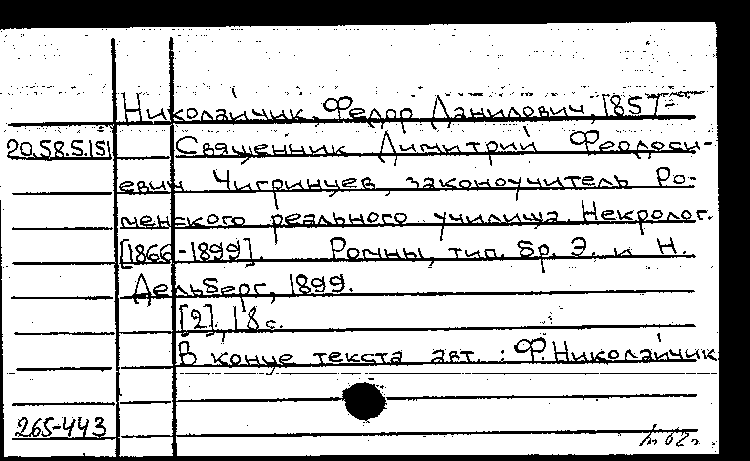 Николайчик, Федор Данилович, 1857-
20.58.5.151 Священник Димитрий Феодоси-
евич Чигринцев, законоучитель Ро-
менского реального училища. Некролог.
[1866-1899]. Ромны, тип. бр. Э. и Н.
Дельберг, 1899.
[2], 18 с.
В конце текста авт.: Ф. Николайчик
265-443